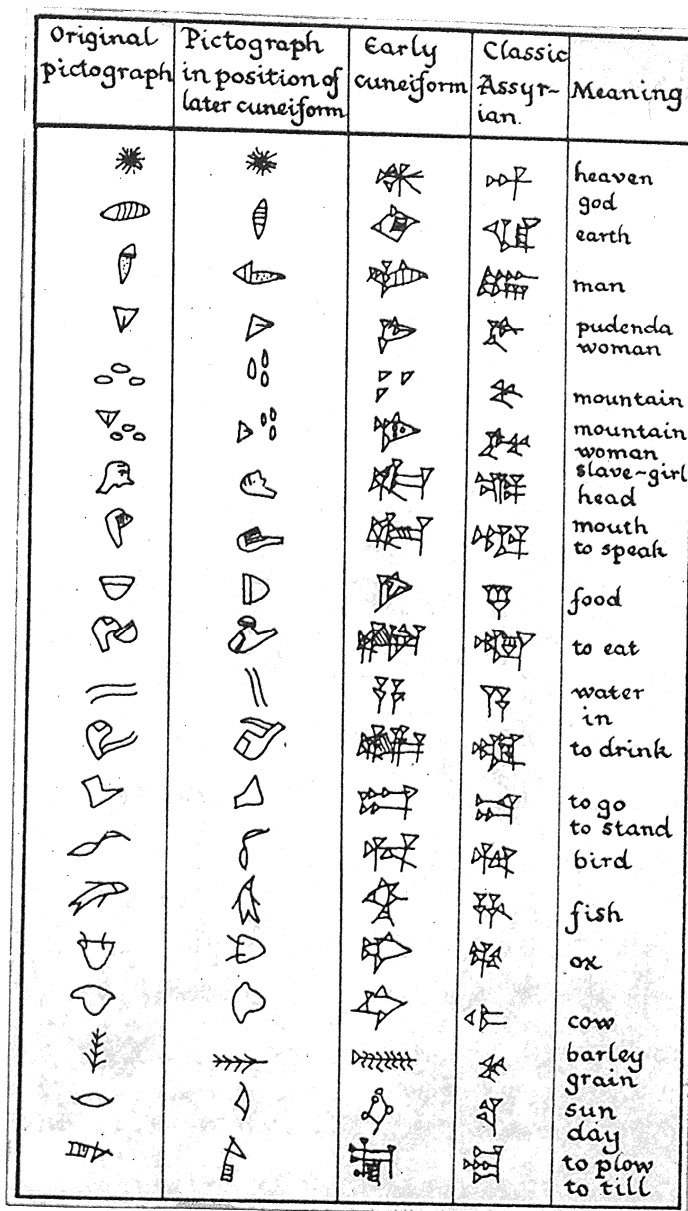 Original pictograph
Pictograph in position of later cuneiform
Early cuneiform
Classic Assyr- ian.
Meaning
heaven
god
earth
man
pudenda
woman
mountain
mountain
woman
slave-girl
head
mouth
to speak
food
to eat
water
in
to drink
to go
to stand
bird
fish
ox
cow
barley
grain
sun
day
to plow
to till